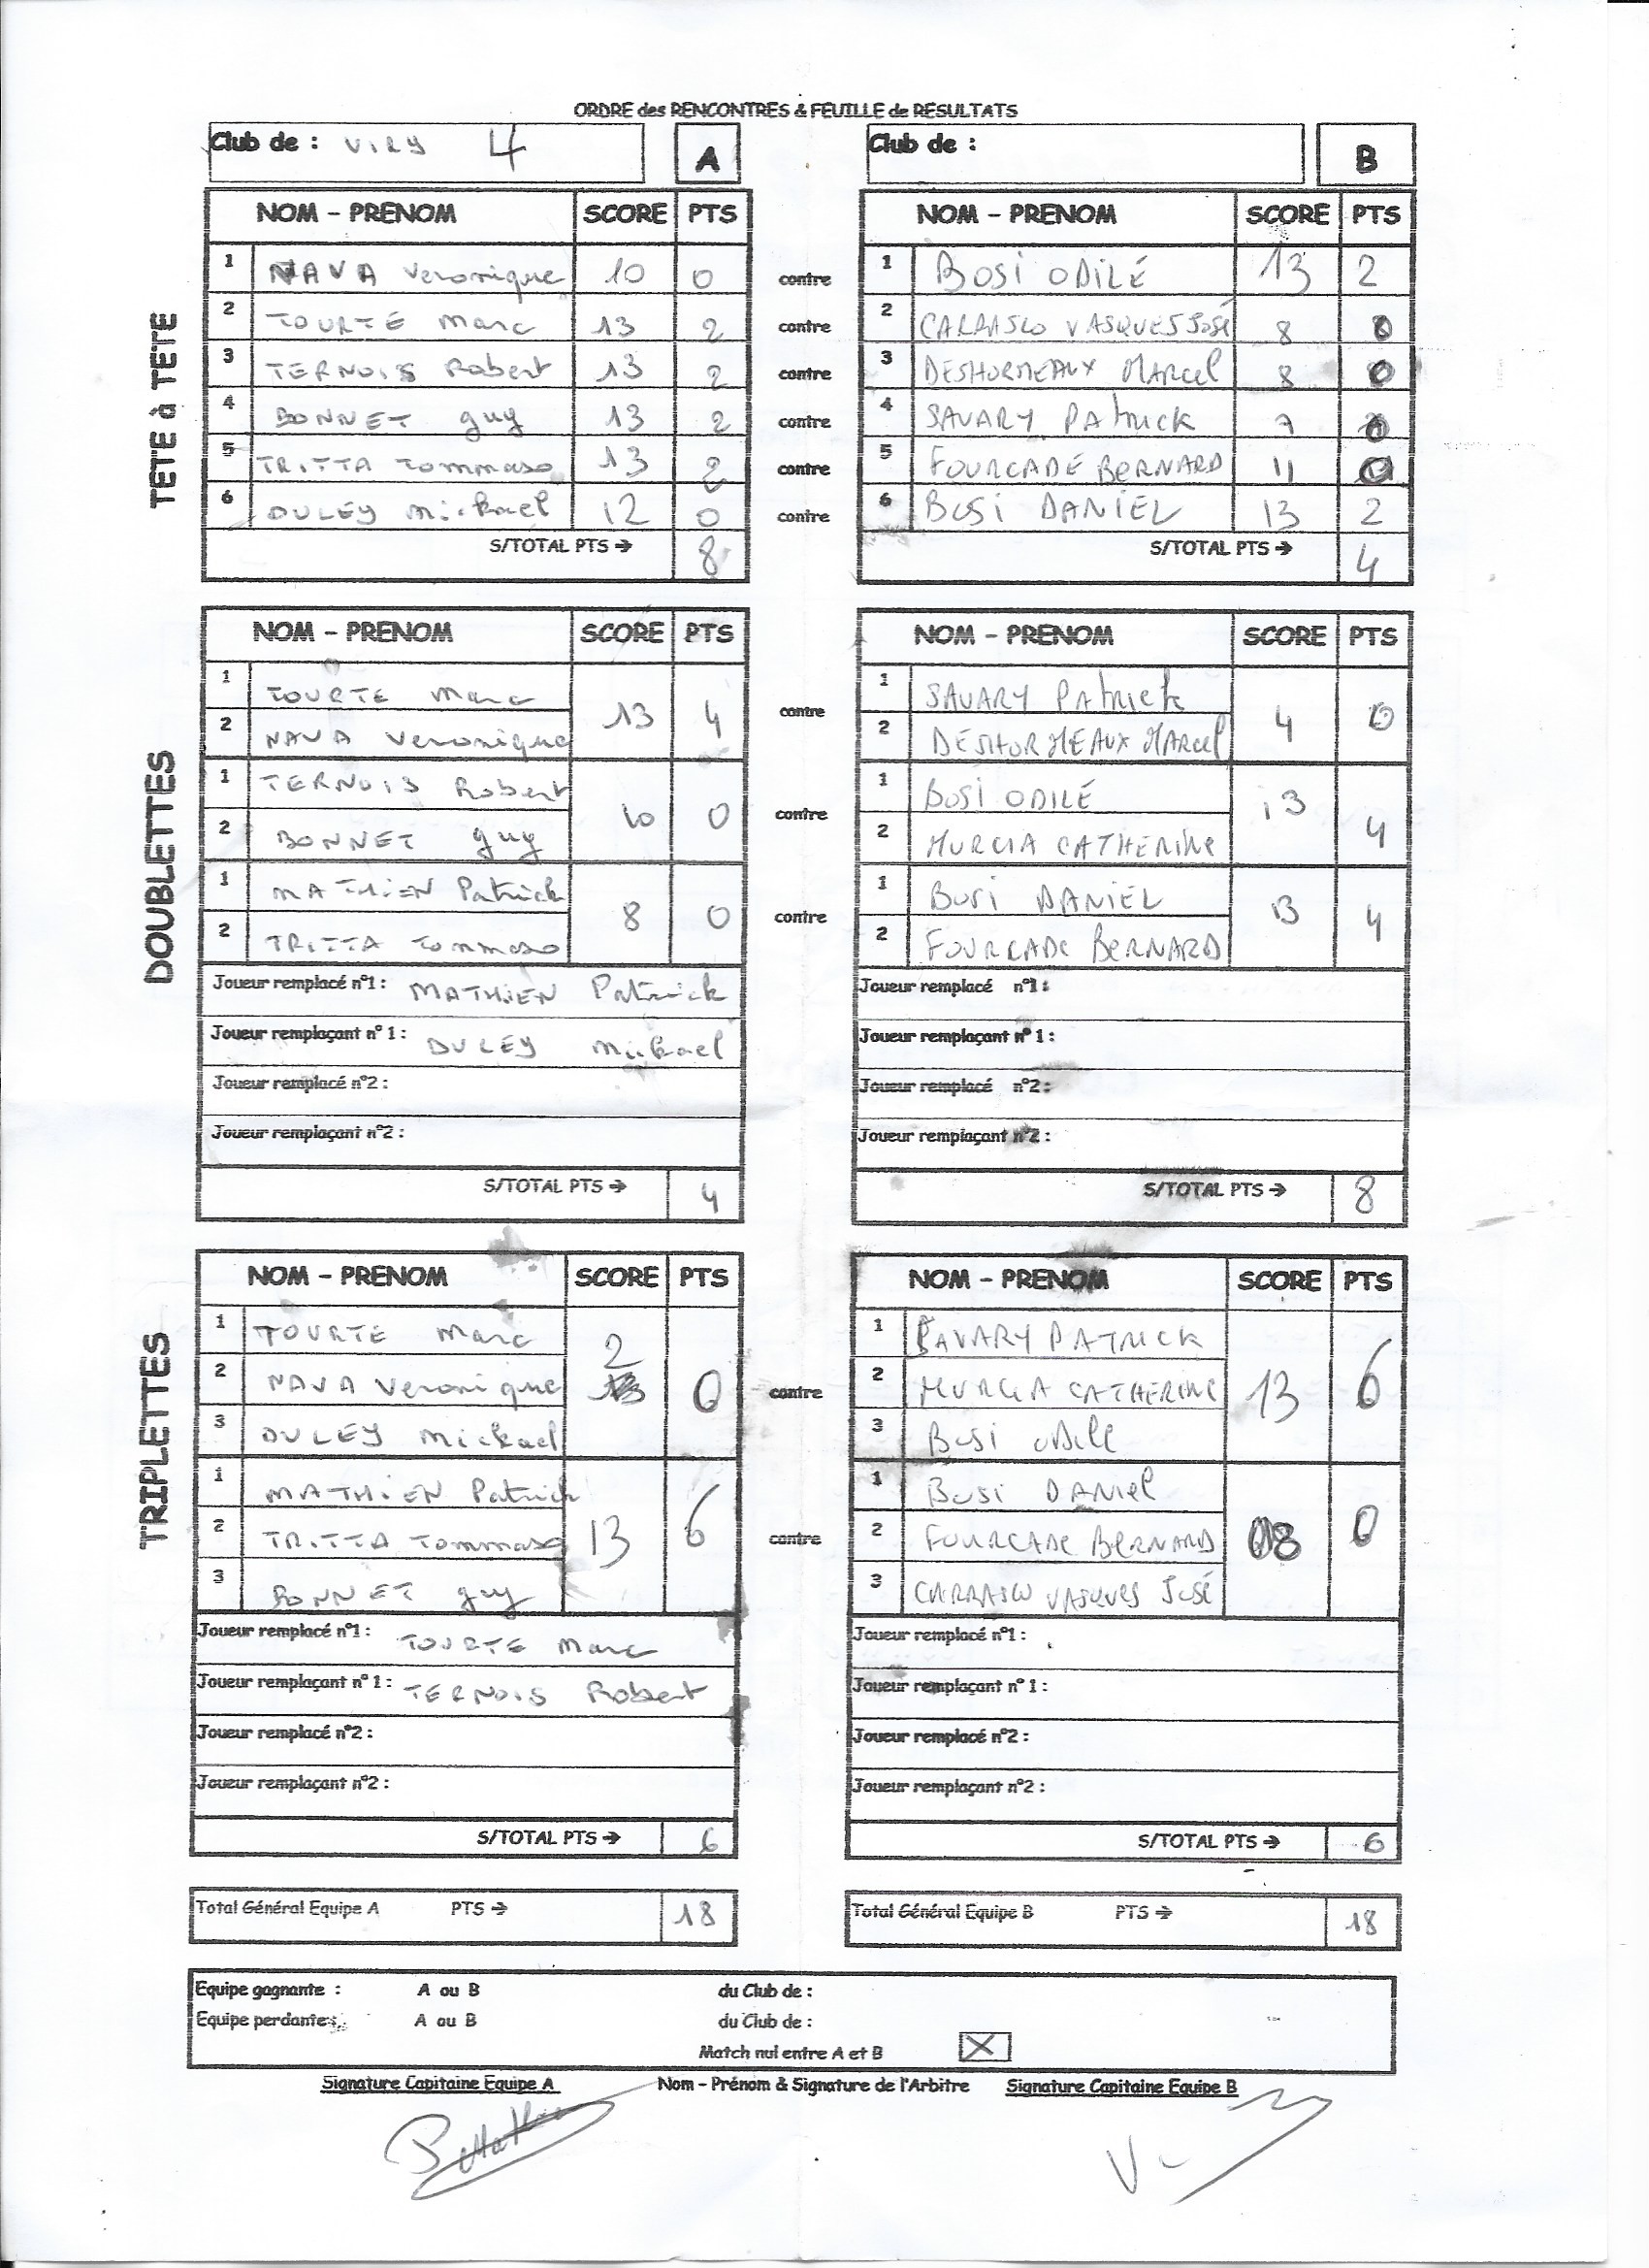 ORDRE des RENCONTRES & FEUILLE de RESULTATS
Club de : VIRY 4 A Club de : B
NOM - PRENOM SCORE PTS NOM - PRENOM SCORE PTS
TETE à TETE
1 NAVA Veronique 10 0 contre 1 BOSI ODILE 13 2
2 TOURTE Marc 13 2 contre 2 CARRASCO VASQUES José 8 0
3 TERNOIS Robert 13 2 contre 3 DESHORMEAUX Marcel 8 0
4 BONNET guy 13 2 contre 4 SAVARY PAtrick 7 0
5 TRITTA Tommaso 13 2 contre 5 FOURCADE BERNARD 11 0
6 DULEY Mickael 12 0 contre 6 BOSI DANIEL 13 2
S/TOTAL PTS → 8 S/TOTAL PTS → 4
NOM - PRENOM SCORE PTS NOM - PRENOM SCORE PTS
DOUBLETTES
1 TOURTE Marc 13 4 contre 1 SAVARY PAtrick 4 0
2 NAVA Veronique 2 DESHORMEAUX MARcel
1 TERNOIS Robert 10 0 contre 1 BOSI ODILE 13 4
2 BONNET guy 2 MURCIA CATHERINE
1 MATHIEN Patrick 8 0 contre 1 BOSI DANIEL 13 4
2 TRITTA Tommaso 2 FOURCADE BERNARD
Joueur remplacé n°1 : MATHIEN Patrick Joueur remplacé n°1 :
Joueur remplaçant n° 1 : DULEY Mickael Joueur remplaçant n° 1 :
Joueur remplacé n°2 : Joueur remplacé n°2 :
Joueur remplaçant n°2 : Joueur remplaçant n°2 :
S/TOTAL PTS → 4 S/TOTAL PTS → 8
NOM - PRENOM SCORE PTS NOM - PRENOM SCORE PTS
TRIPLETTES
1 TOURTE Marc 2 0 contre 1 SAVARY PATRICK 13 6
2 NAVA Veronique 2 MURCIA CATHERINE
3 DULEY Mickael 3 Bosi odile
1 MATHIEN Patrick 13 6 contre 1 Bosi DANIel 08 0
2 TRITTA Tommaso 2 FOURCADE BERNARD
3 BONNET guy 3 CARRASCO VASQUES José
Joueur remplacé n°1 : TOURTE Marc Joueur remplacé n°1 :
Joueur remplaçant n° 1 : TERNOIS Robert Joueur remplaçant n° 1 :
Joueur remplacé n°2 : Joueur remplacé n°2 :
Joueur remplaçant n°2 : Joueur remplaçant n°2 :
S/TOTAL PTS → 6 S/TOTAL PTS → 6
Total Général Equipe A PTS → 18 Total Général Equipe B PTS → 18
Equipe gagnante : A ou B du Club de :
Equipe perdante : A ou B du Club de :
Match nul entre A et B X
Signature Capitaine Equipe A Nom - Prénom & Signature de l'Arbitre Signature Capitaine Equipe B